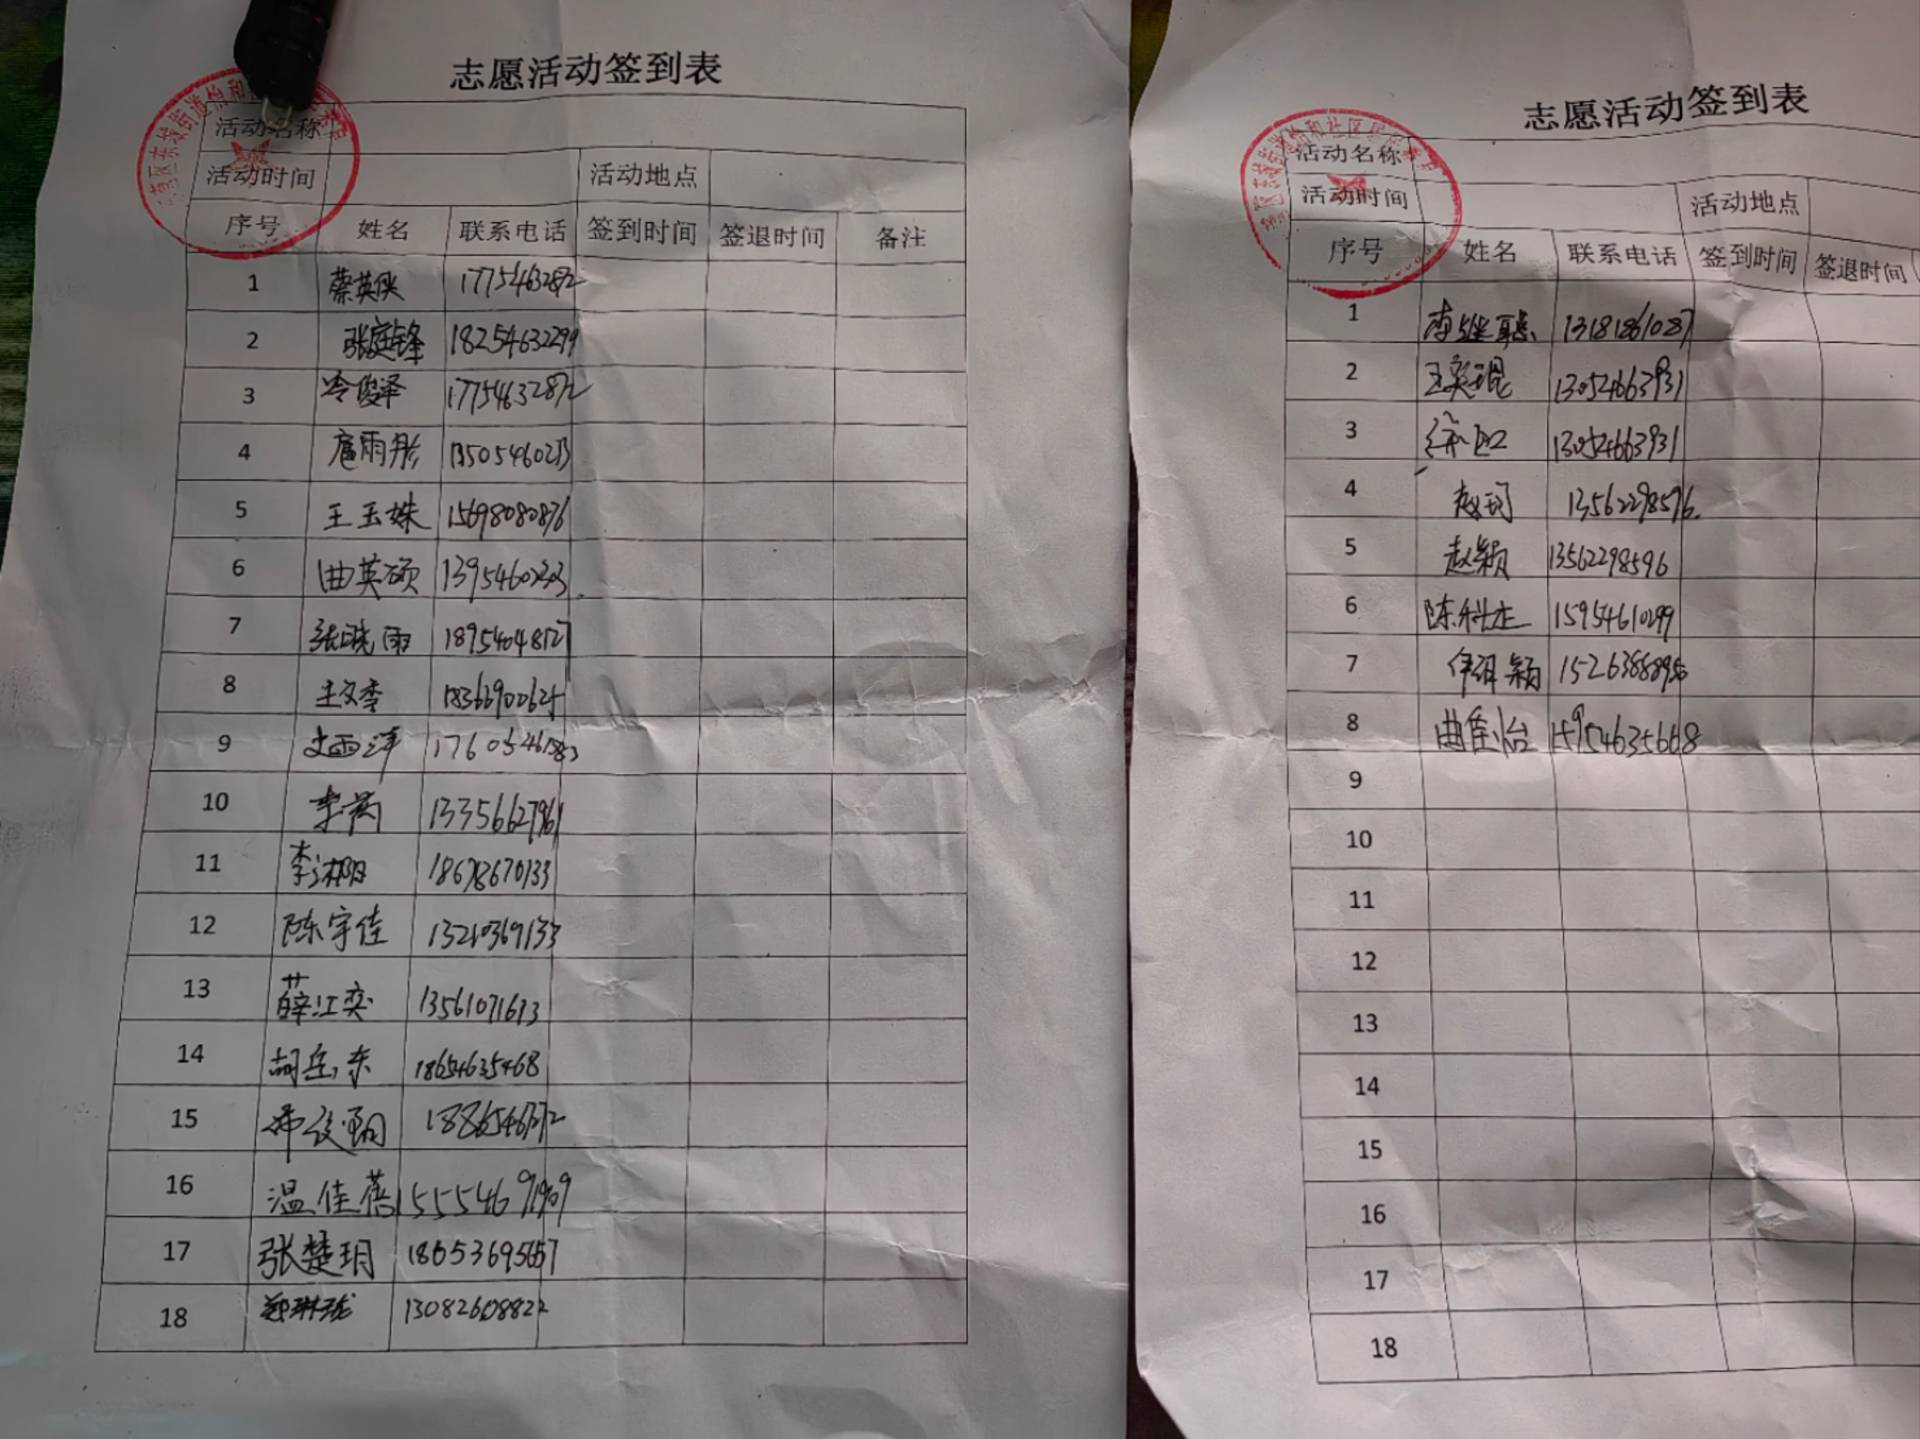 志愿活动签到表
活动名称
活动时间 活动地点
序号 姓名 联系电话 签到时间 签退时间 备注
1 蔡英侠 17754632872
2 张庭锋 18254632299
3 冷俊泽 17754632872
4 扈雨彤 13505460213
5 王玉姝 15698080876
6 曲英硕
7 张晓雨 18954048127
8 王文李 18366900625
9 17605461883
10 13356627961
11 李沐阳 18678670133
12 陈宇佳 13210369133
13 薛江奕 13561071613
14 胡岳东 18654635468
15
16 温佳蓓 15554691909
17 张楚玥 18653695657
18 郑琳珑 13082608822
志愿活动签到表
活动名称
活动时间 活动地点
序号 姓名 联系电话 签到时间 签退时间
1 李继聪 13181861087
2 王奕琨 13054663931
3 13054663931
4 赵珂 13562298596
5 赵颖 13562298596
6 陈科达 15954610299
7 15263888950
8 曲佳怡 15954635668
9
10
11
12
13
14
15
16
17
18